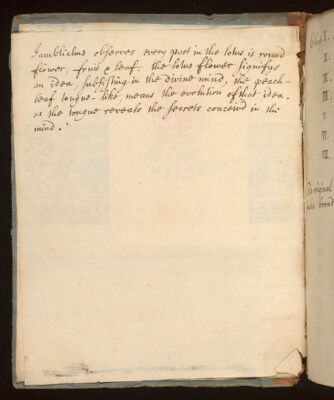 Iamblichus observes every part in the lotus is round
flower, fruit & leaf. the lotus flower signifys
an idea subsisting in the divine mind, the peach-
leaf tongue-like, means the evolution of that idea.
as the tongue reveals the secrets conceivd in the
mind.
I.
II.
III.
V.
VI.
VII.
original